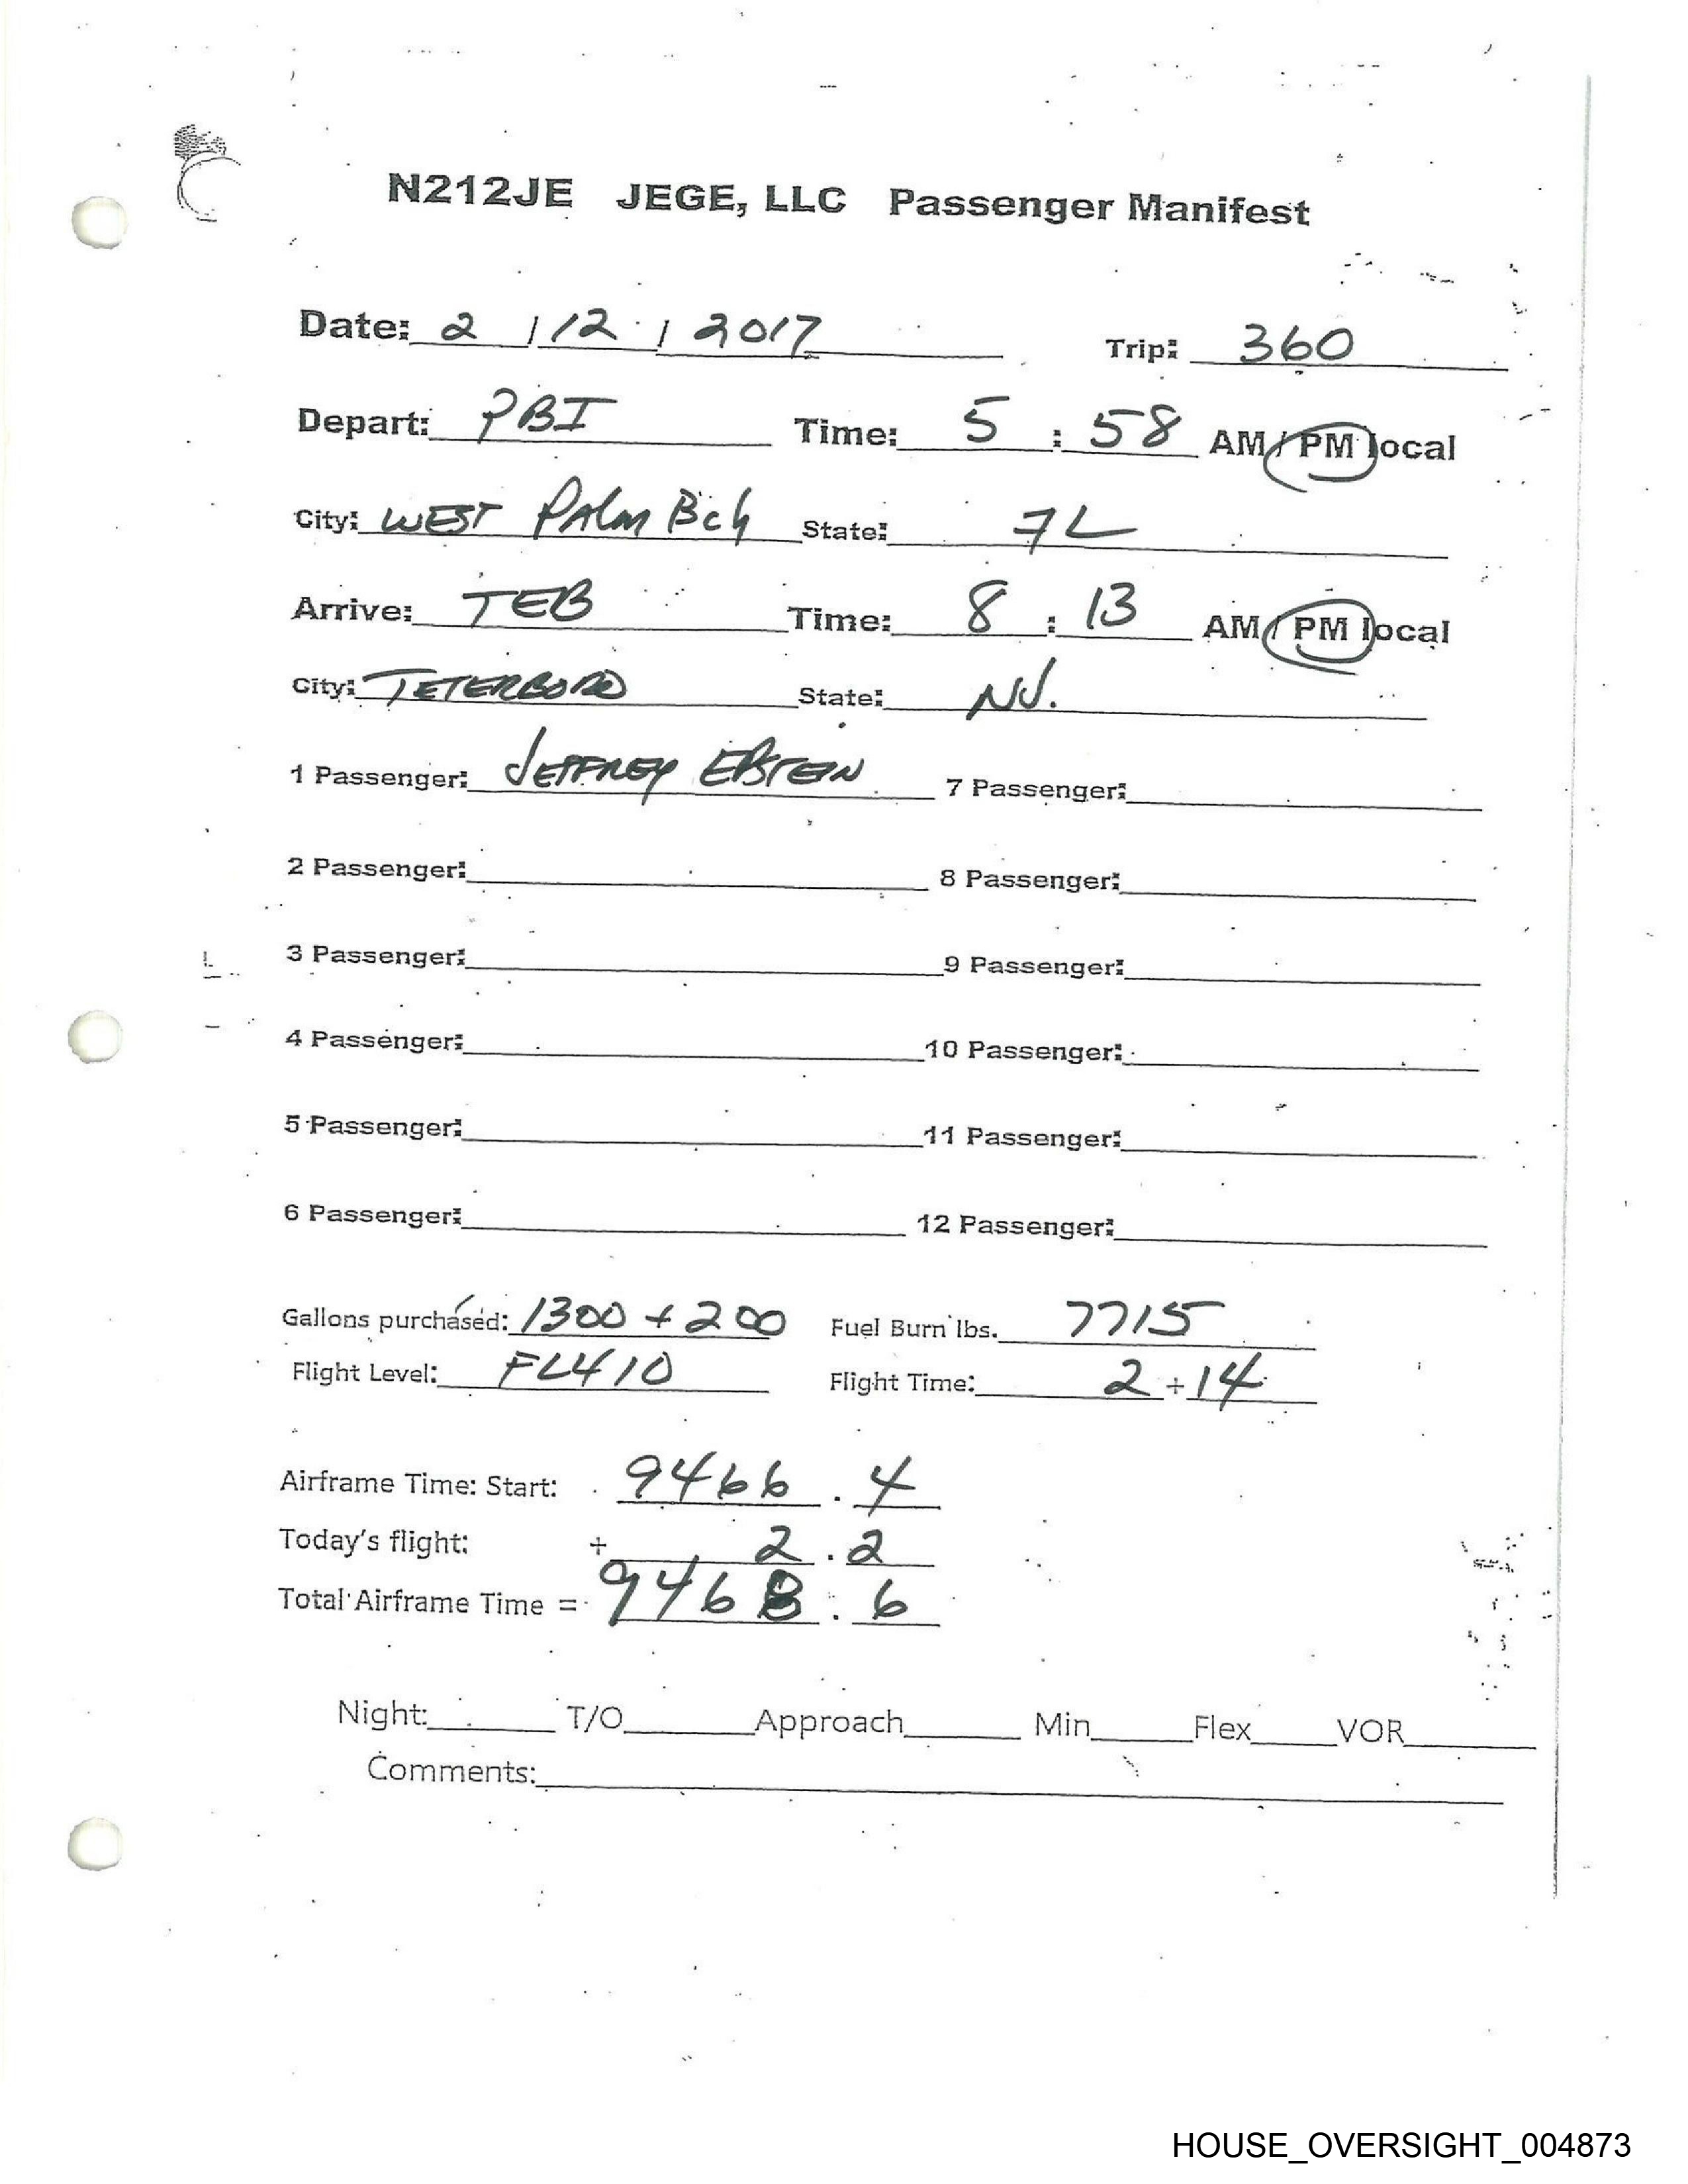 N212JE JEGE, LLC Passenger Manifest
Date: 2 / 12 / 2017 Trip: 360
Depart: PBI Time: 5 : 58 AM / PM local
City: WEST PAlm Bch State: FL
Arrive: TEB Time: 8 : 13 AM / PM local
City: TETERBORO State: NJ.
1 Passenger: JEFFREY EPSTEIN 7 Passenger:
2 Passenger: 8 Passenger:
3 Passenger: 9 Passenger:
4 Passenger: 10 Passenger:
5 Passenger: 11 Passenger:
6 Passenger: 12 Passenger:
Gallons purchased: 1300 + 200 Fuel Burn lbs. 7715
Flight Level: FL410 Flight Time: 2 + 14
Airframe Time: Start: 9466 . 4
Today's flight: + 2 . 2
Total Airframe Time = 9468 . 6
Night: T/O Approach Min Flex VOR
Comments:
HOUSE_OVERSIGHT_004873